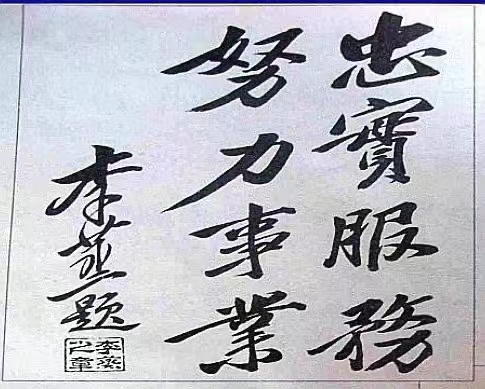 忠實服務
努力事業
李蒸題
李蒸之章